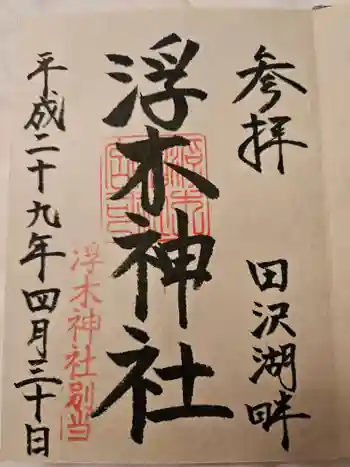 参拝 田沢湖畔
浮木神社
浮木神社別当
平成二十九年四月三十日